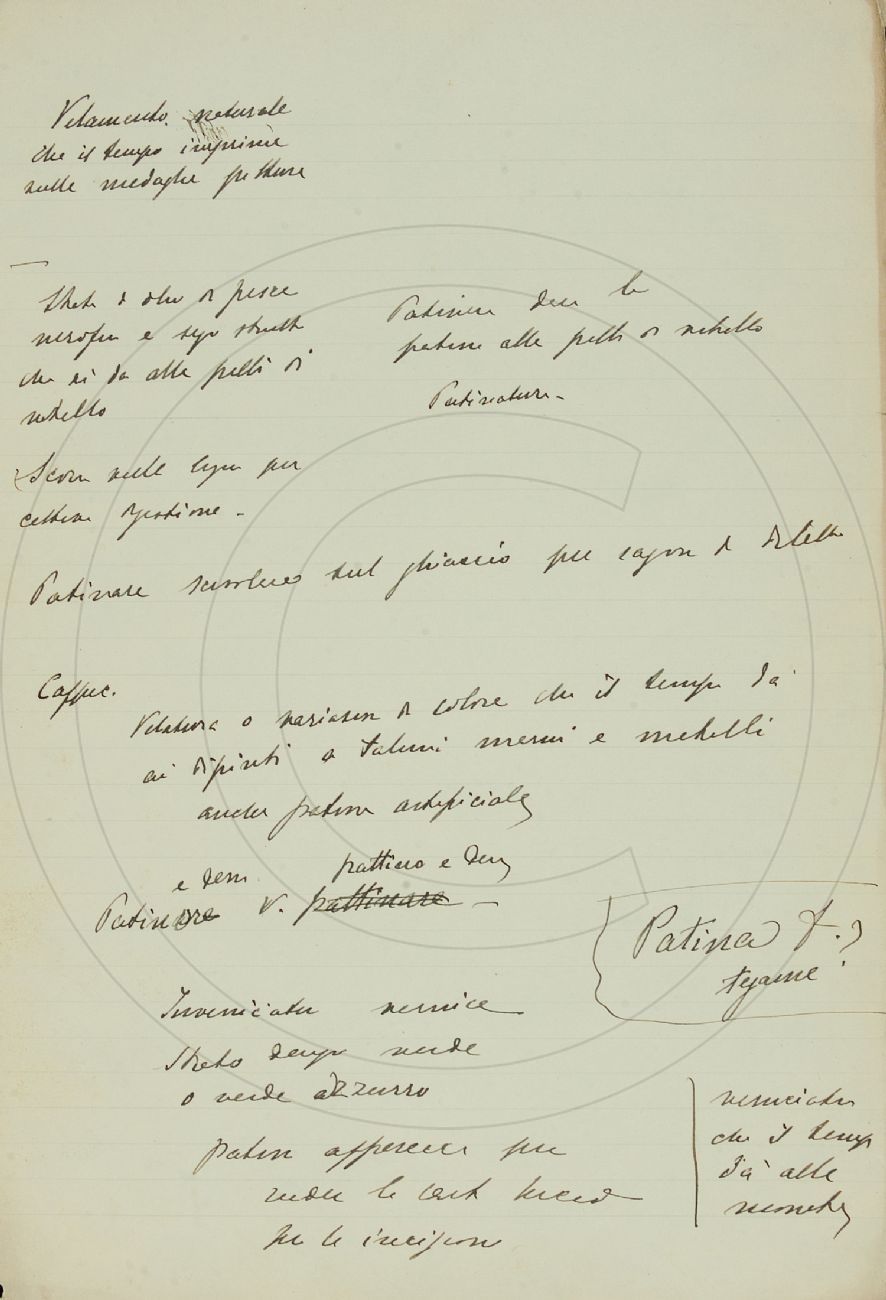 Velamento naturale
che il tempo imprime
nelle medaglie pitture
Strato d olio di pesce
nerofu e sego strutt
che si da alle pelli di
vitello
Patinare dare la
patina alle pelli di vitello
Patinatura -
Scora nelle lingua per
cattiva digestione -
Patinare scivolare sul ghiaccio per cagion di diletto
Cappuc.
Velatura o variazion di colore che il tempo dà
ai dipinti a taluni marmi e metalli
anche patina artificiale
e deriv. pattino e deriv
Patinare V. pattinare -
Patina f. ?
tegame
Inverniciatu vernice
Strato verde
o verde azzurro
patina apparecc per
render le cart
per le incisioni
verniciatu
che il tempo
dà alle
monete